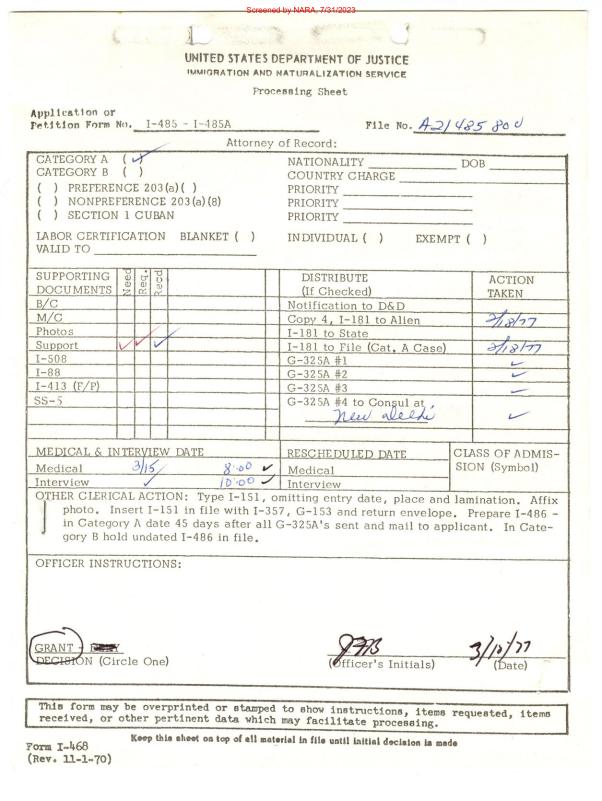 Screened by NARA, 7/31/2023
UNITED STATES DEPARTMENT OF JUSTICE
IMMIGRATION AND NATURALIZATION SERVICE
Processing Sheet
Application or
Petition Form No. I-485 - I-485A File No. A21 485 800
Attorney of Record:
CATEGORY A (✓) NATIONALITY DOB
CATEGORY B ( ) COUNTRY CHARGE
( ) PREFERENCE 203(a)( ) PRIORITY
( ) NONPREFERENCE 203(a)(8) PRIORITY
( ) SECTION 1 CUBAN PRIORITY
LABOR CERTIFICATION BLANKET ( ) INDIVIDUAL ( ) EXEMPT ( )
VALID TO
SUPPORTING DOCUMENTS Need Req. Recd DISTRIBUTE (If Checked) ACTION TAKEN
B/C Notification to D&D
M/C Copy 4, I-181 to Alien 2/18/77
Photos I-181 to State
Support ✓ ✓ ✓ I-181 to File (Cat. A Case) 2/18/77
I-508 G-325A #1 ✓
I-88 G-325A #2 ✓
I-413 (F/P) G-325A #3 ✓
SS-5 G-325A #4 to Consul at
New Delhi ✓
MEDICAL & INTERVIEW DATE RESCHEDULED DATE CLASS OF ADMIS-
SION (Symbol)
Medical 3/15 8:00 ✓ Medical
Interview ✓ 10:00 ✓ Interview
OTHER CLERICAL ACTION: Type I-151, omitting entry date, place and lamination. Affix
photo. Insert I-151 in file with I-357, G-153 and return envelope. Prepare I-486 -
in Category A date 45 days after all G-325A's sent and mail to applicant. In Cate-
gory B hold undated I-486 in file.
OFFICER INSTRUCTIONS:
GRANT -
DECISION (Circle One) (Officer's Initials) (Date)
This form may be overprinted or stamped to show instructions, items requested, items
received, or other pertinent data which may facilitate processing.
Keep this sheet on top of all material in file until initial decision is made
Form I-468
(Rev. 11-1-70)